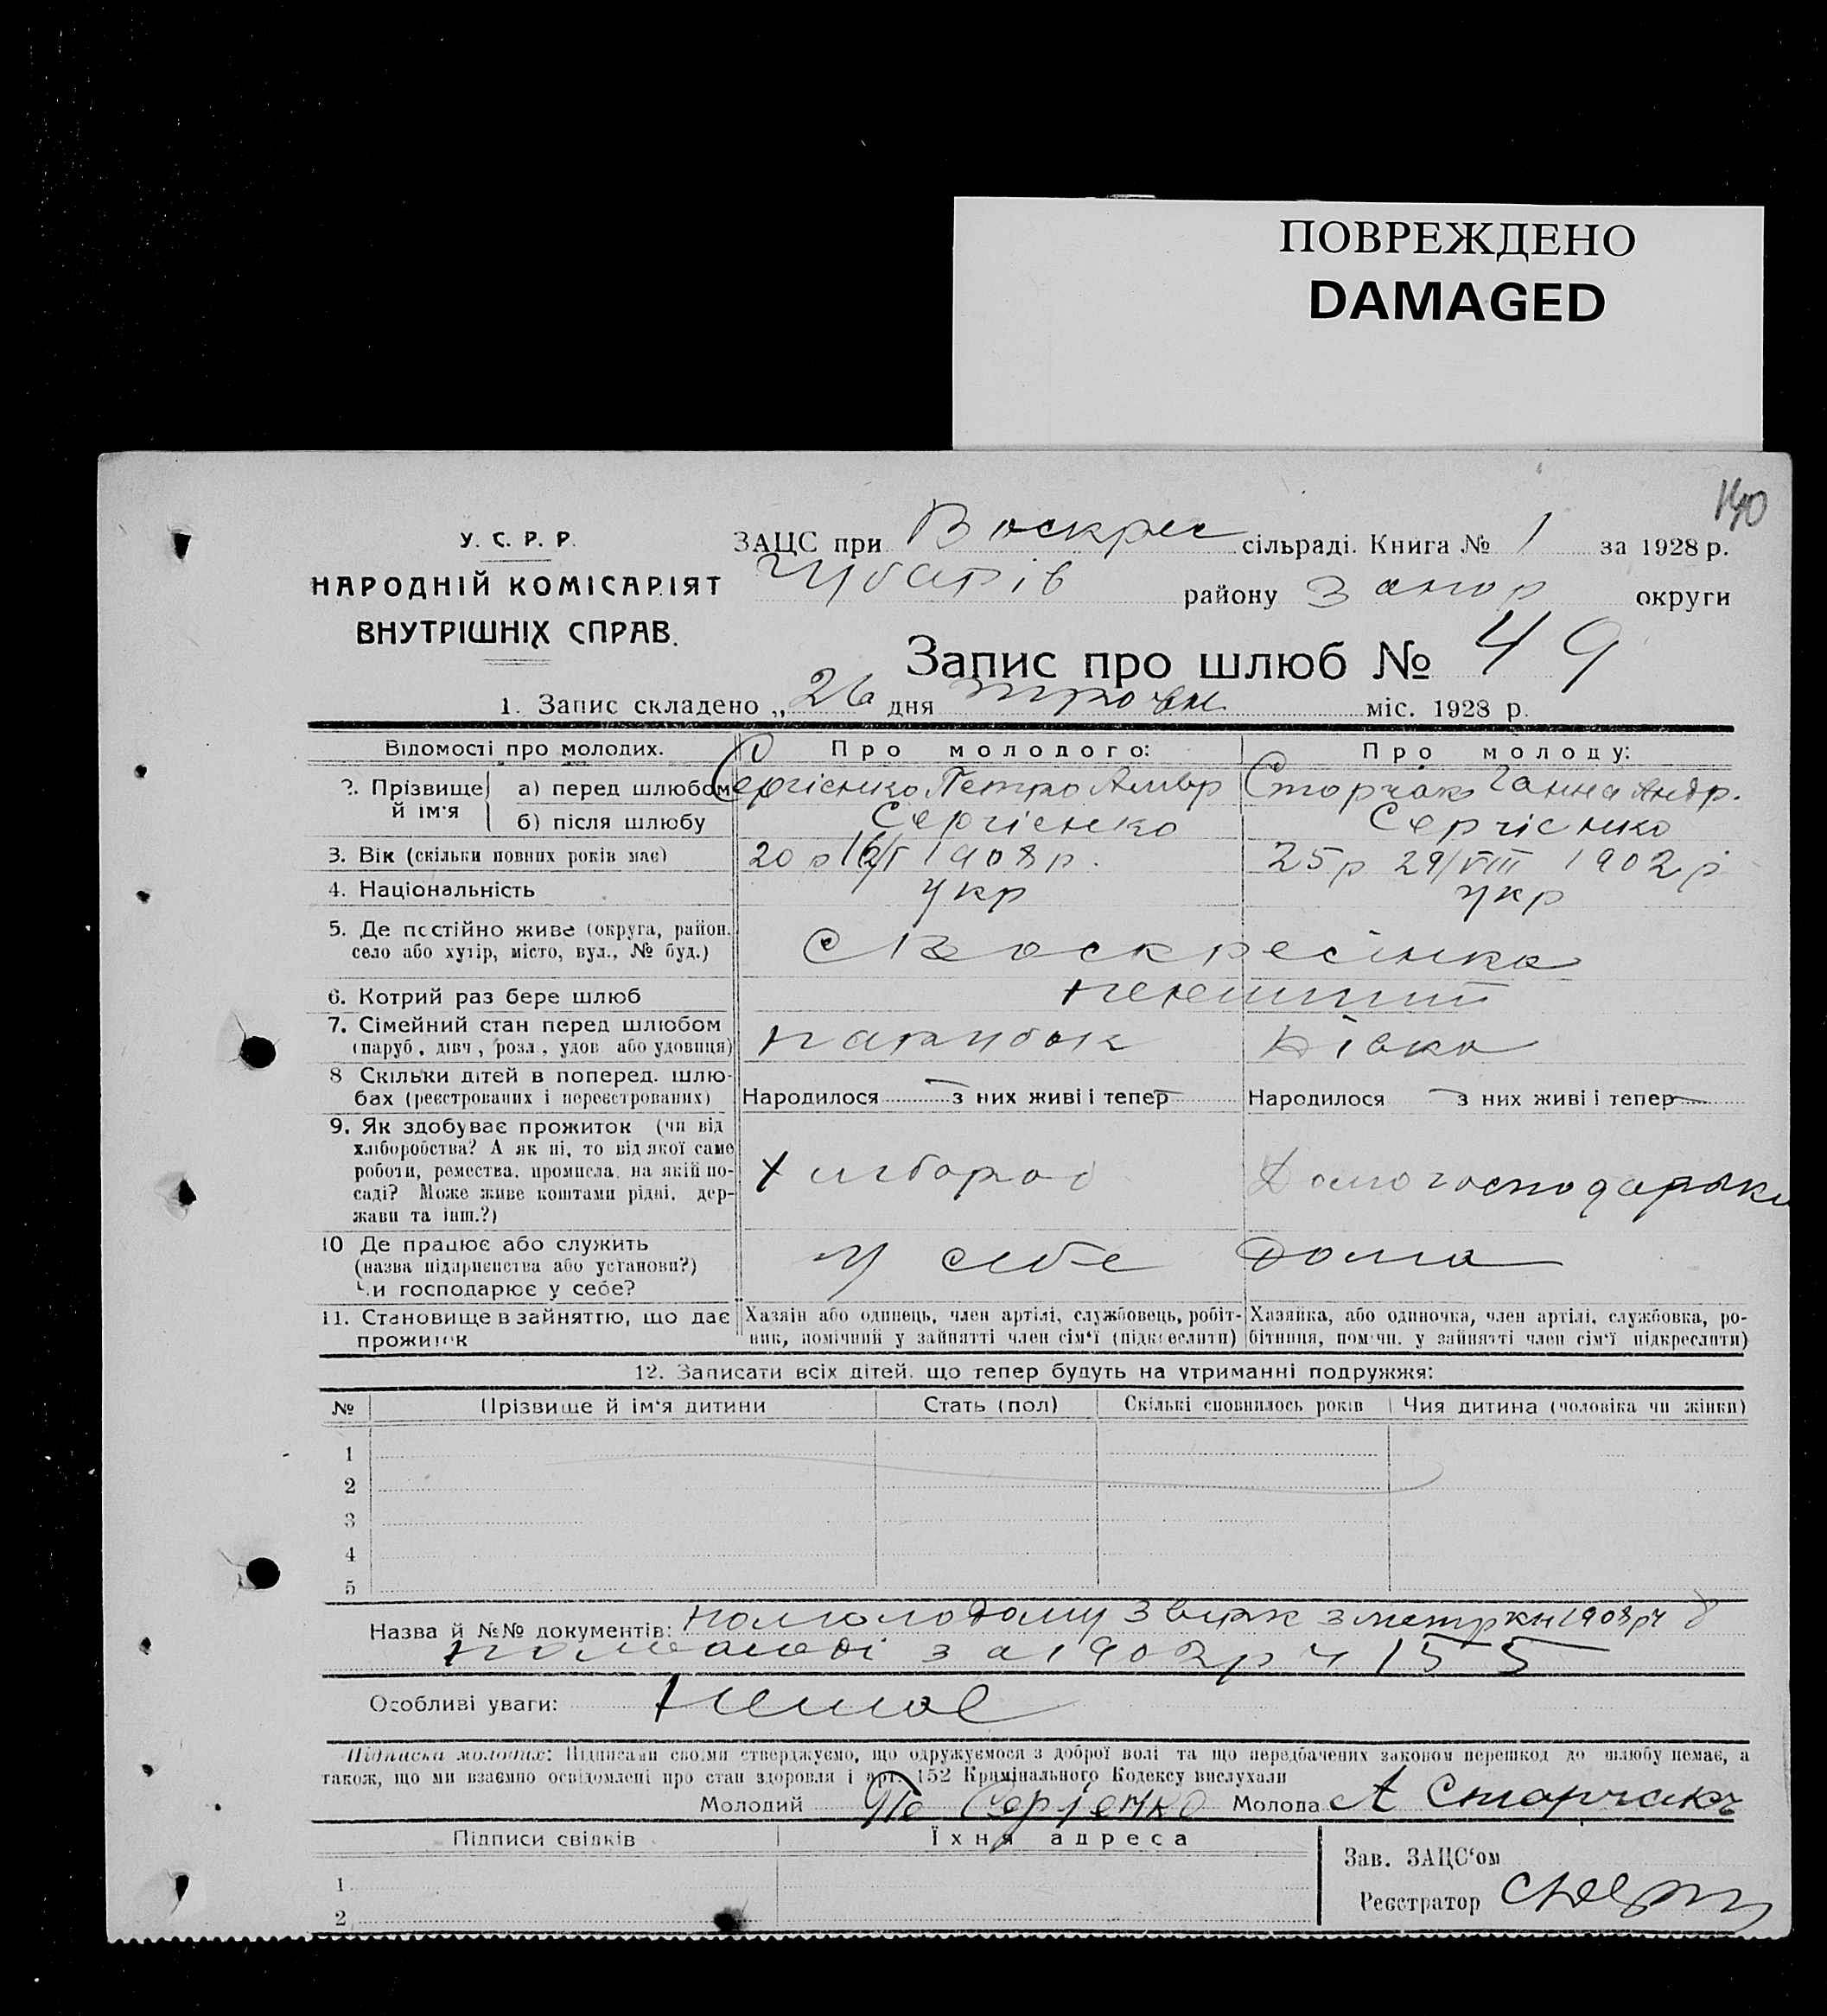 ПОВРЕЖДЕНО
DAMAGED
140
У. С. Р. Р.
НАРОДНІЙ КОМІСАРІЯТ
ВНУТРІШНІХ СПРАВ.
ЗАЦС при Воскрес сільраді. Книга № 1 за 1928 р.
Чубарів району Запор округи
Запис про шлюб № 49
1. Запис складено „ 26 дня міс. 1928 р.
Відомості про молодих. Про молодого: Про молоду:
2. Прізвище й ім'я а) перед шлюбом Сергієнко Петро Сторчак Ганна Андр.
б) після шлюбу Сергієнко Сергієнко
3. Вік (скільки повних років має) 20 р 1908 р. 25 р 29/VIII 1902 р
4. Національність укр укр
5. Де постійно живе (округа, район,
село або хутір, місто, вул., № буд.) С Воскресінка
6. Котрий раз бере шлюб
7. Сімейний стан перед шлюбом
(паруб., дівч., розл., удов. або удовиця) парубок Дівка
8 Скільки дітей в поперед. шлю-
бах (реєстрованих і нереєстрованих) Народилося — з них живі і тепер — Народилося — з них живі і тепер —
9. Як здобуває прожиток (чи від
хліборобства? А як ні, то від якої саме
роботи, ремества, промисла, на якій по-
саді? Може живе коштами рідні, дер-
жави та інш.?) Хлібороб Домогосподарька
10 Де працює або служить
(назва підприємства або установи?)
Чи господарює у себе? у себе дома
11. Становище в зайняттю, що дає
прожиток
Хазяїн або одинець, член артілі, службовець, робіт-
ник, помічний у зайнятті член сім'ї (підкреслити)
Хазяйка, або одиночка, член артілі, службовка, ро-
бітниця, помічн. у зайнятті член сім'ї підкреслити)
12. Записати всіх дітей, що тепер будуть на утриманні подружжя:
№ Прізвище й ім'я дитини Стать (пол) Скількі сповнилось років Чия дитина (чоловіка чи жінки)
1
2
3
4
5
Назва й №№ документів: помолодому з метрки 1908 р ч 8
помолоді за 1902 р ч 155
Особливі уваги: Немає
Підписка молодих: Підписами своїми стверджуємо, що одружуємося з доброї волі та що передбачених законом перешкод до шлюбу немає, а
також, що ми взаємно освідомлені про стан здоровля і арт. 152 Кримінального Кодексу вислухали
Молодий Сергієнко Молода А Старчакъ
Підписи свідків Їхня адреса
1
2
Зав. ЗАЦС'ом
Реєстратор